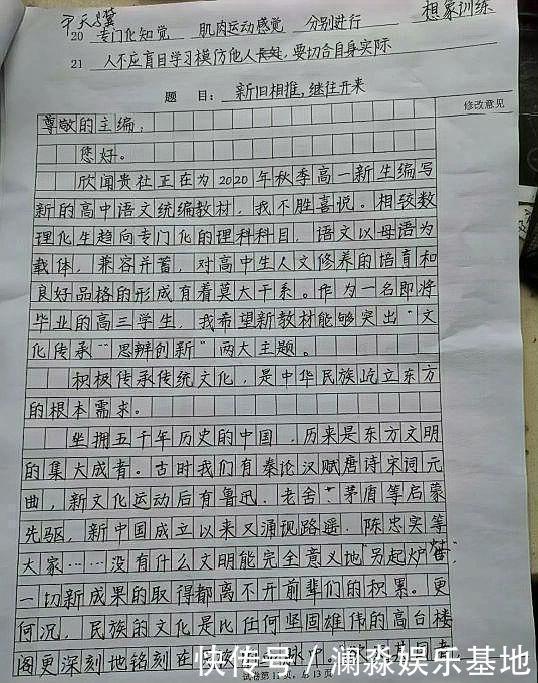 20 专门化知觉 肌肉运动感觉 分别进行 想家训练
21 人不应盲目学习模仿他人长处,要切合自身实际
题 目: 新旧相推,继往开来
修改意见
尊敬的主编:
您好。
欣闻贵社正在为2020年秋季高一新生编写
新的高中语文统编教材,我不胜喜悦。相较数
理化生趋向专门化的理科科目,语文以母语为
载体,兼容并蓄,对高中生人文修养的培育和
良好品格的形成有着莫大干系。作为一名即将
毕业的高三学生,我希望新教材能够突出“文
化传承”“思辨创新”两大主题。
积极传承传统文化,是中华民族屹立东方
的根本需求。
坐拥五千年历史的中国,历来是东方文明
的集大成者。古时我们有秦论汉赋唐诗宋词元
曲,新文化运动后有鲁迅、老舍、茅盾等启蒙
先驱,新中国成立以来又涌现路遥、陈忠实等
大家……没有什么文明能完全意义地“另起炉灶”,
一切新成果的取得都离不开前辈们的积累。更
何况,民族的文化是比任何坚固雄伟的高台楼
阁更深刻地铭刻在
试卷第11页,总13页
快传号 / 澜淼娱乐基地